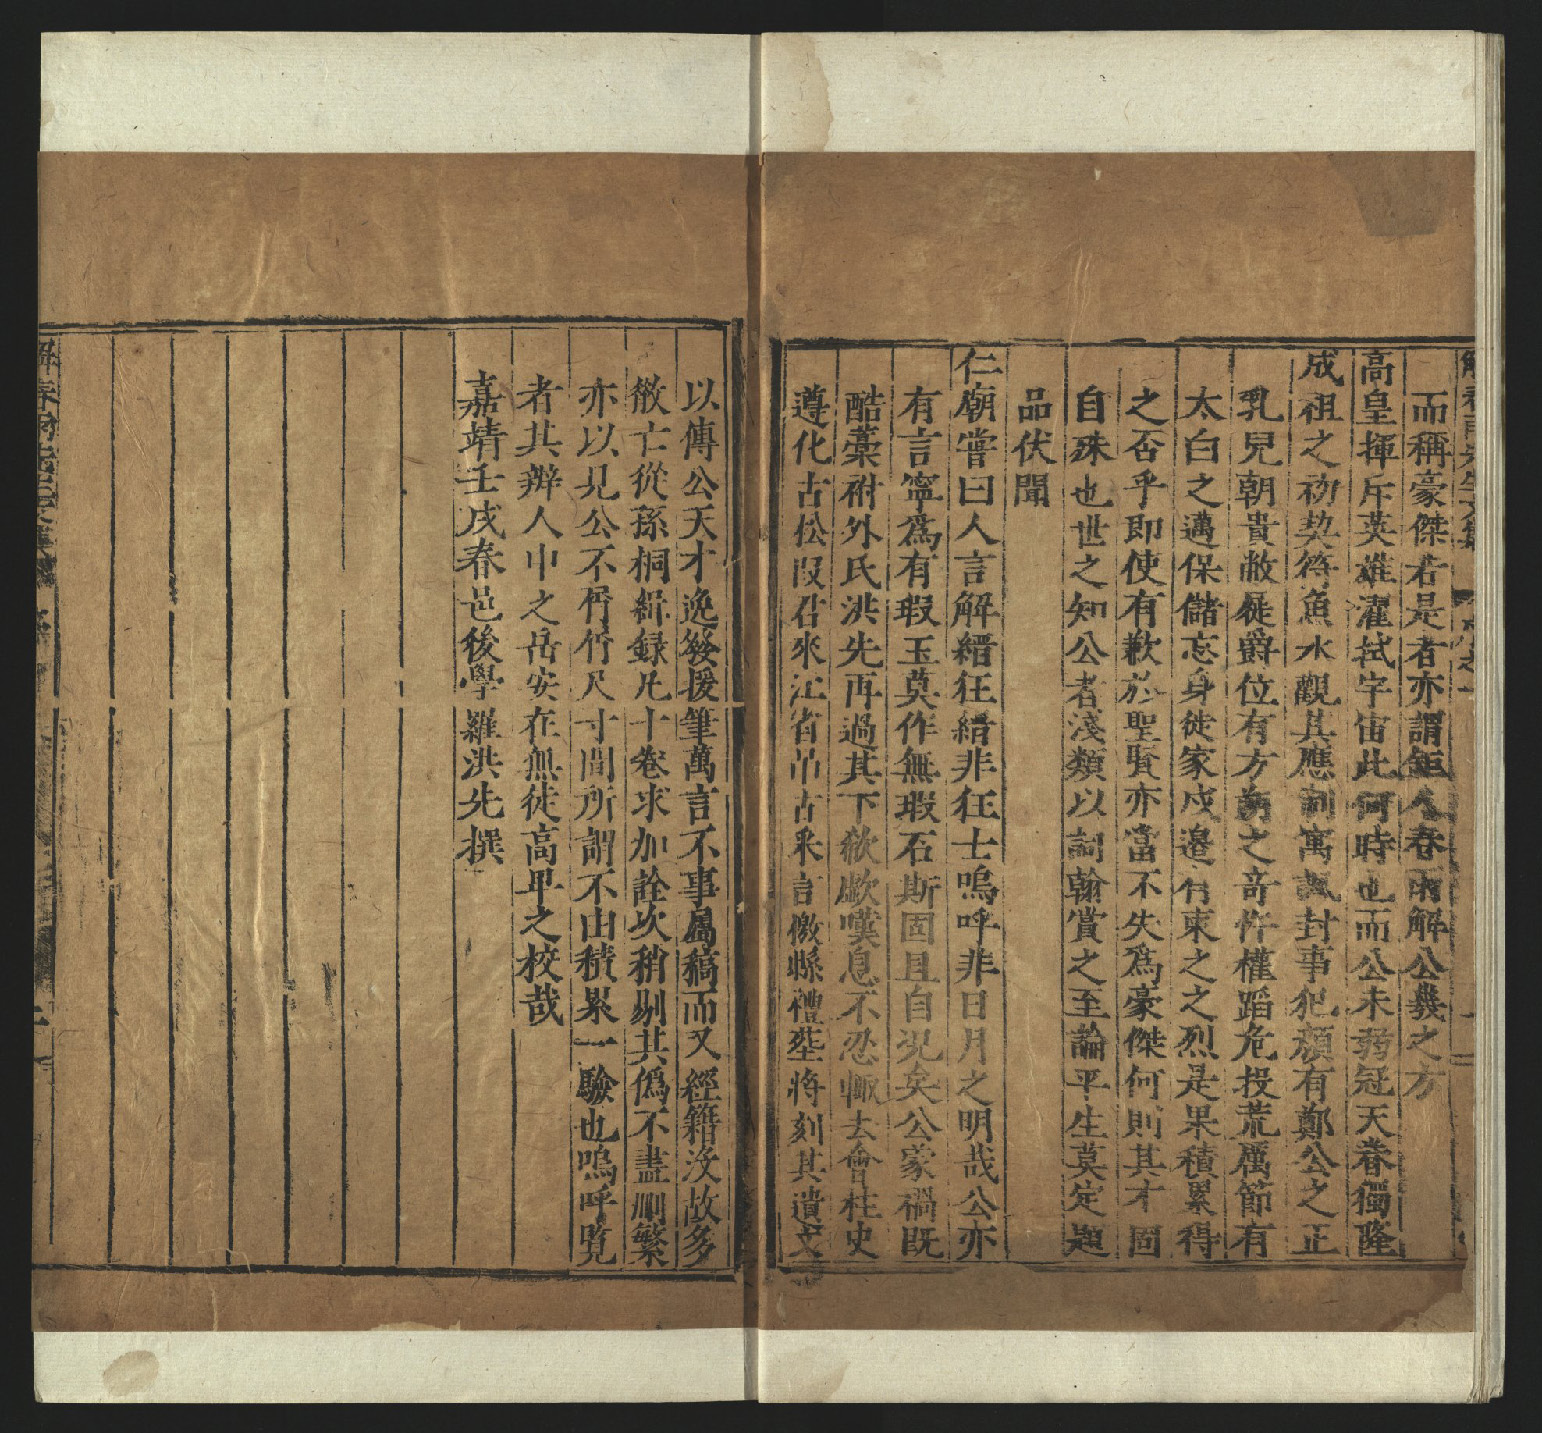 而稱豪傑若是者亦謂鉅人春雨解公義之方
高皇揮斥英雄濯拭宇宙此何時也而公未弱冠天眷獨隆
成祖之初契符魚水觀其應制寓諷封事犯顏有鄭公之正
乳兒朝貴敝屣爵位有方朔之奇忤權蹈危投荒厲節有
太白之邁保儲忘身徙家戍邊有東之之烈是果積累得
之否乎即使有歉於聖賢亦當不失為豪傑何則其才固
自殊也世之知公者淺類以詞翰賞之至論平生莫定題
品伏聞
仁廟嘗曰人言解縉狂縉非狂士嗚呼非日月之明哉公亦
有言寧為有瑕玉莫作無瑕石斯固且自況矣公家禍既
酷藁祔外氏洪先再過其下欷歔嘆息不忍輒去會柱史
遵化古松段君來江省弔古采言檄縣禮塋將刻其遺文
以傳公天才逸發援筆萬言不事屬稿而又經籍沒故多
散亡從孫桐緝錄凡十卷求加詮次稍剔其偽不盡刪繁
亦以見公不屑屑尺寸間所謂不由積累一驗也嗚呼覽
者其辯人中之岳安在無徒高卑之校哉
嘉靖壬戌春邑後學羅洪先撰